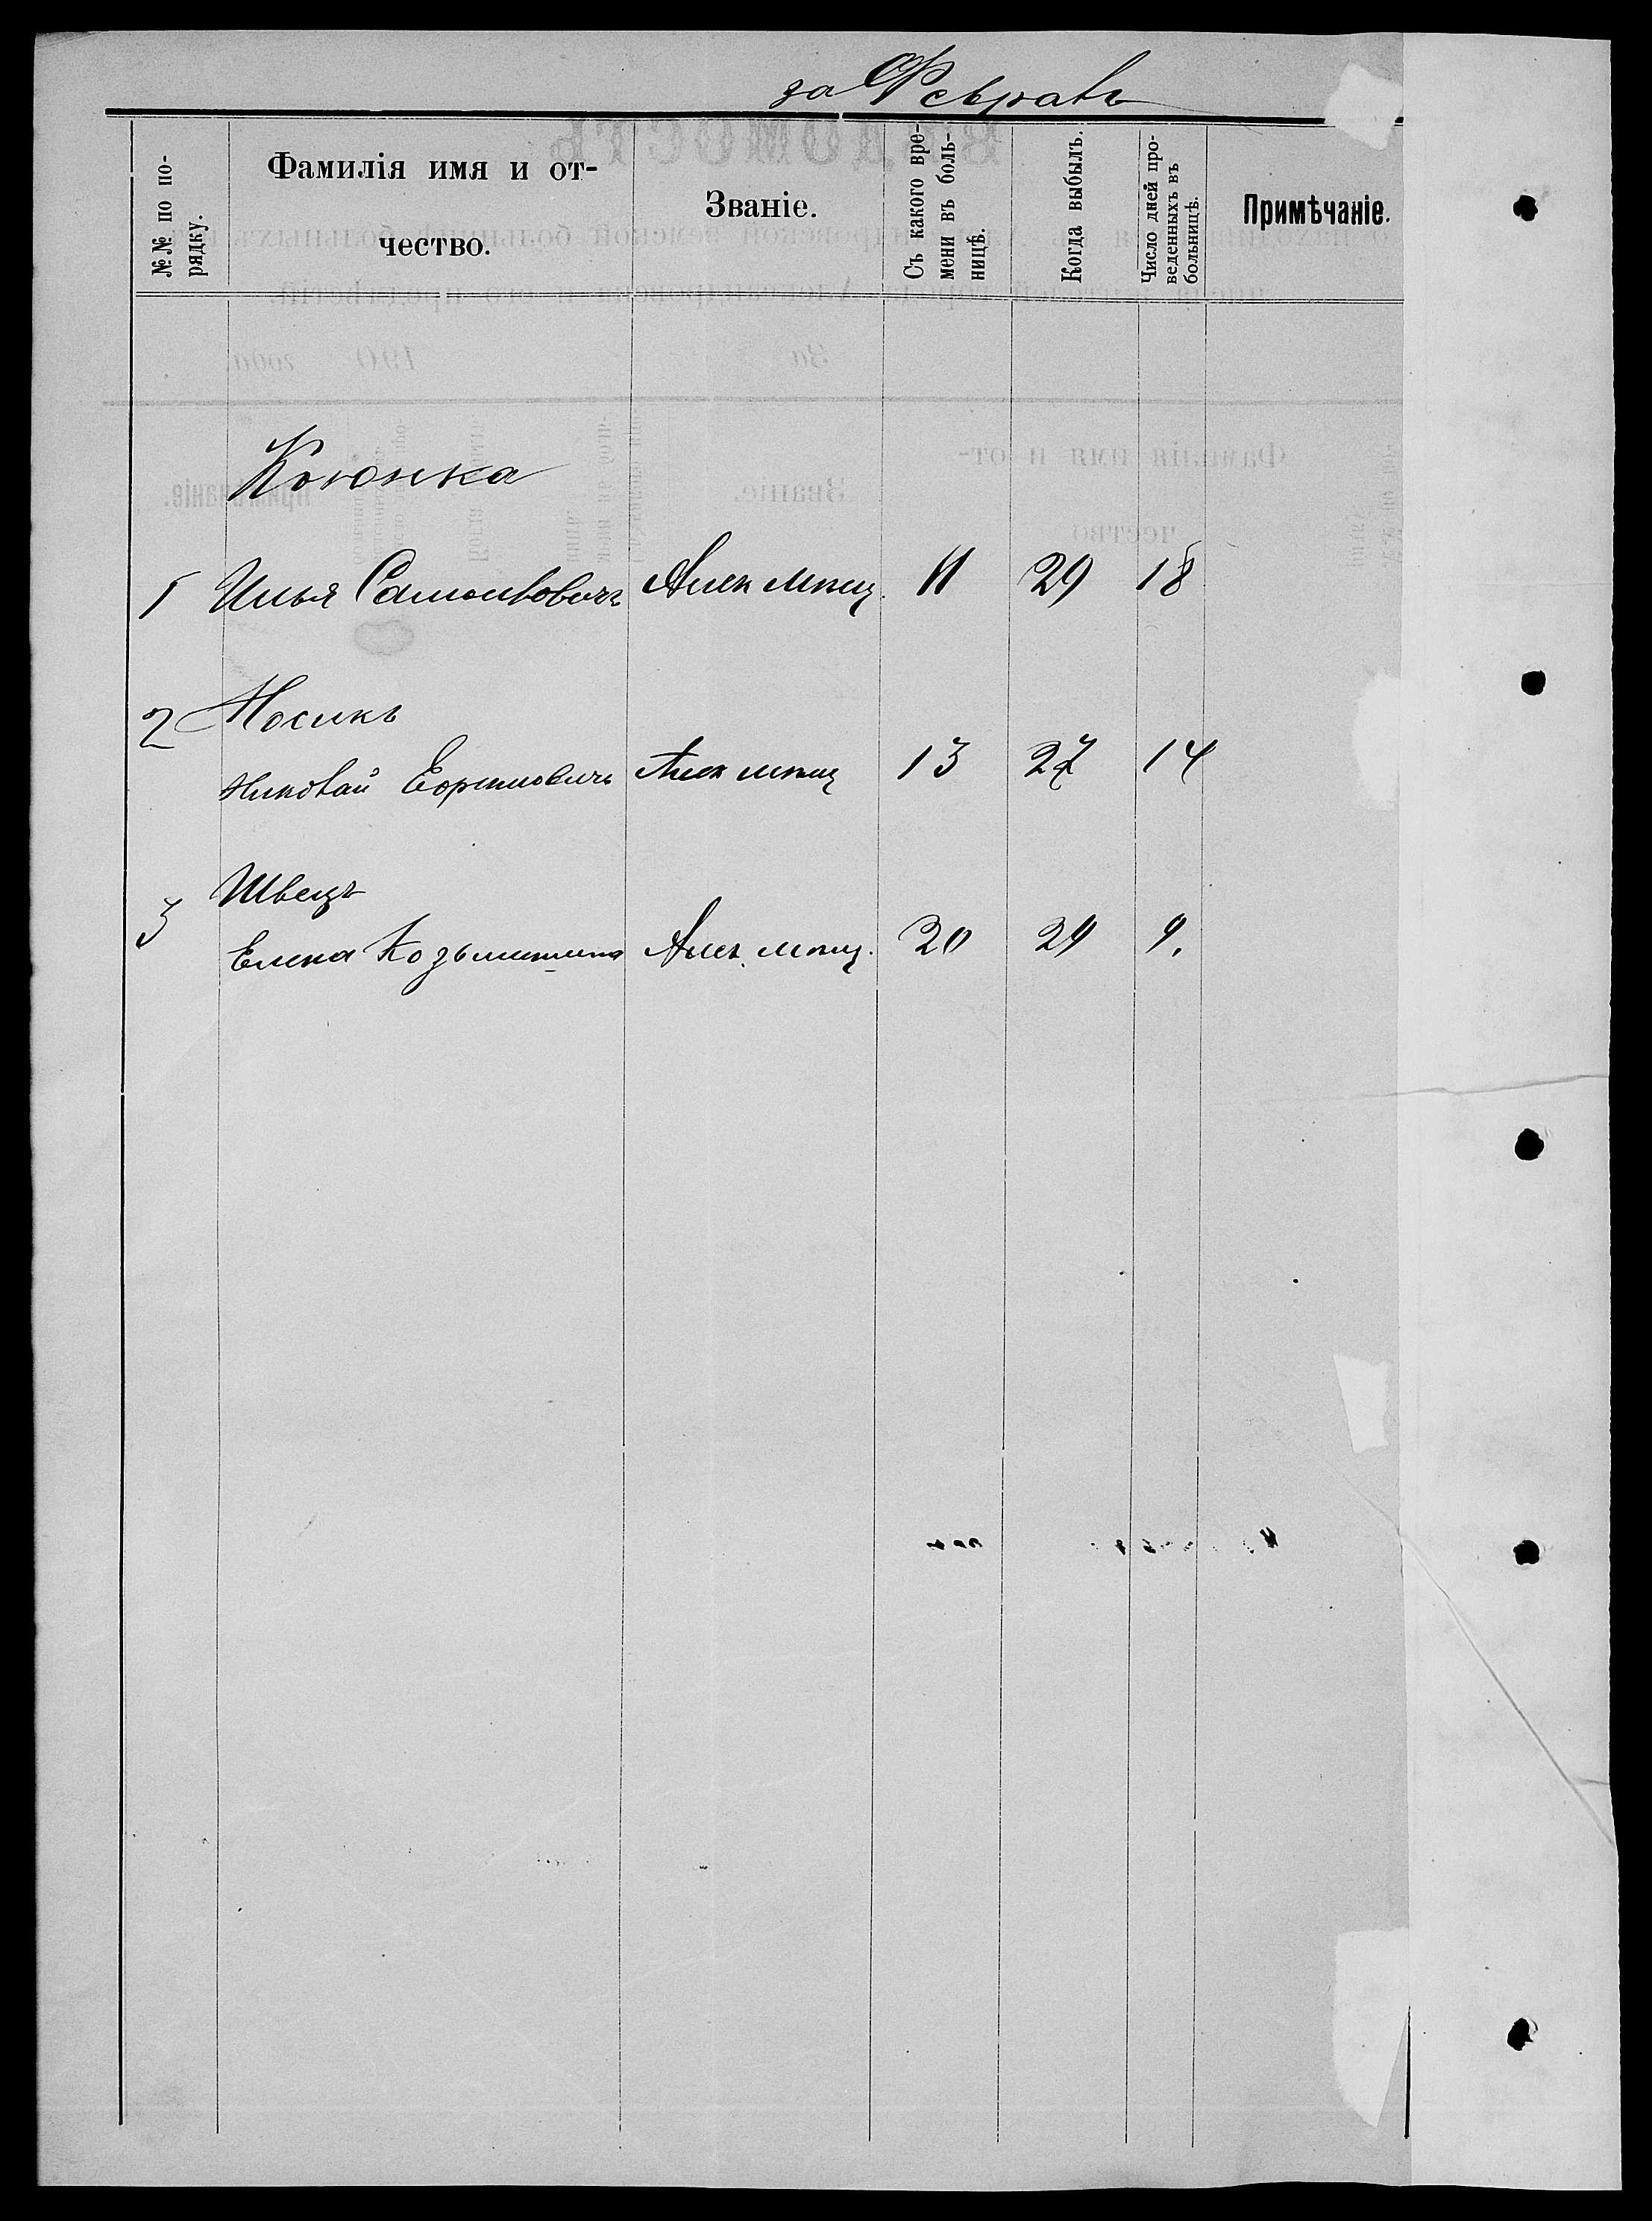 за Февраль
№№ по по-
рядку.
Фамилія имя и от-
чество.
Званіе.
Съ какого вре-
мени въ боль-
ницѣ.
Когда выбылъ.
Число дней про-
веденныхъ въ
больницѣ.
Примѣчаніе.
1 Илья Самойловичъ Алек мѣщ. 11 29 18
2 Носикъ
Николай Алек мѣщ 13 27 14
3 Швецъ
Елена Козьминична Алек. мѣщ. 20 29 9.